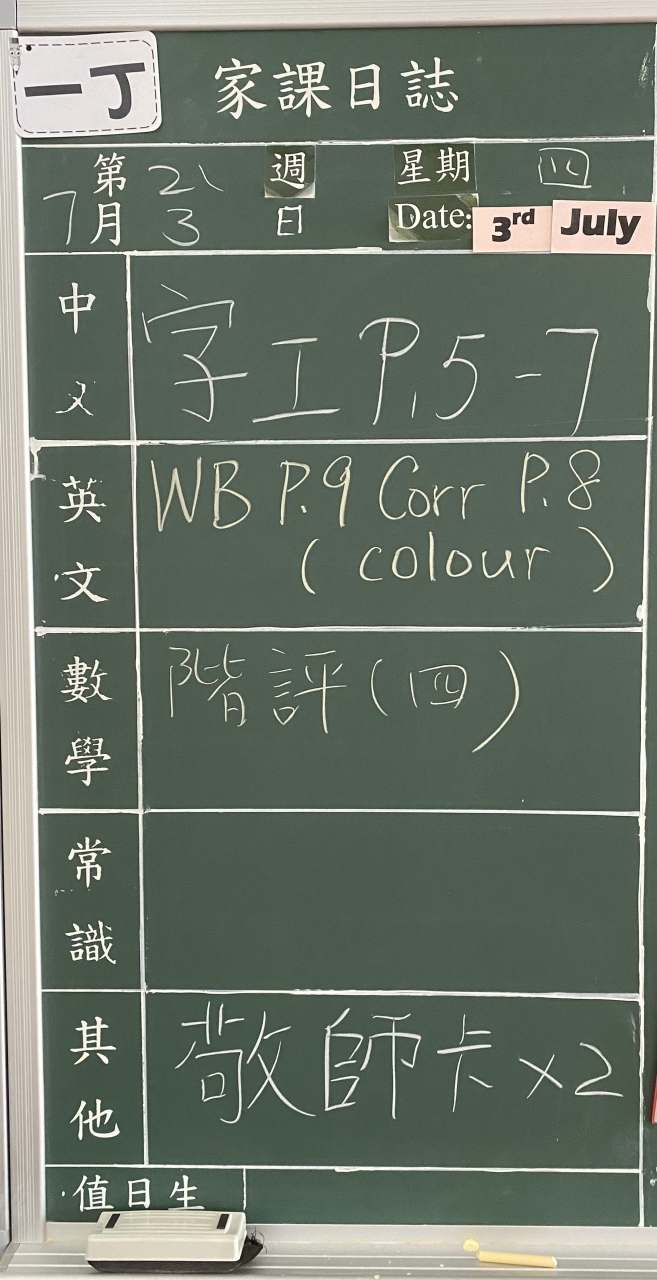 一丁
家課日誌
第 21 週 星期 四
7 月 3 日 Date: 3rd July
中文 字工 P.5-7
英文 WB P.9 Corr P.8
(colour)
數學 階評(四)
常識
其他 敬師卡 x2
值日生